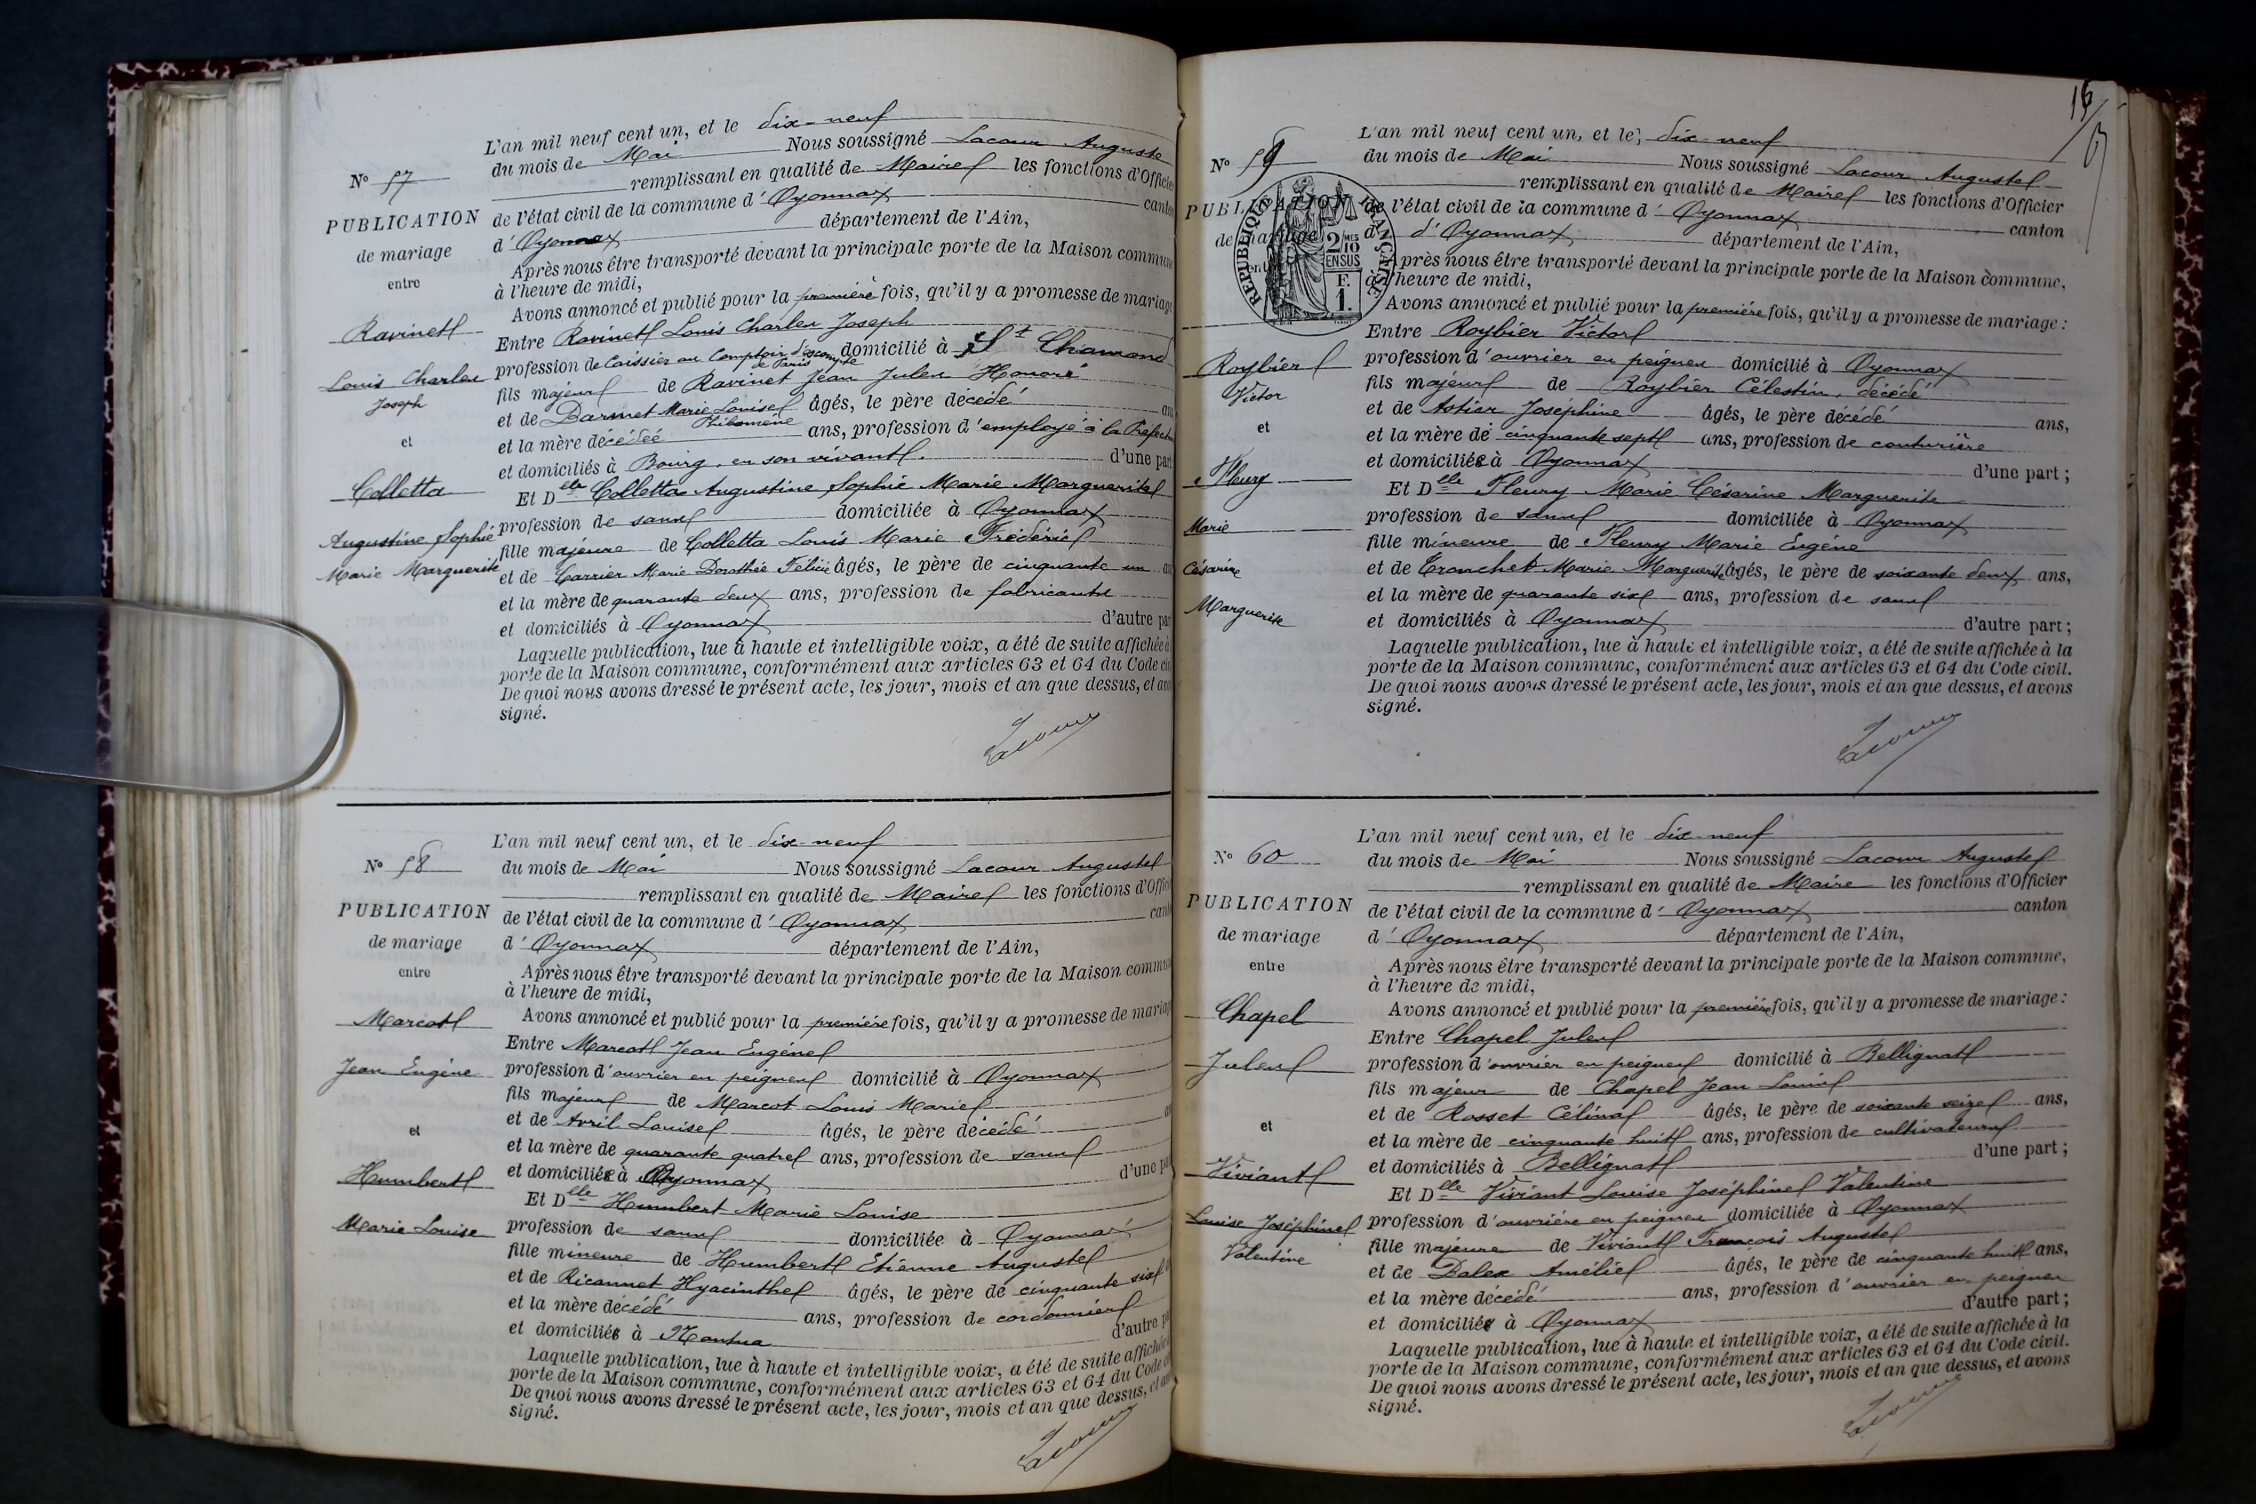 L'an mil neuf cent un, et le dix-neuf
du mois de Mai Nous soussigné Lacour Auguste
N° 57
remplissant en qualité de Maire les fonctions d'Officier
PUBLICATION
de l'état civil de la commune d' Oyonnax canton
d' Oyonnax département de l'Ain,
de mariage
Après nous être transporté devant la principale porte de la Maison commune
entre
à l'heure de midi,
Avons annoncé et publié pour la première fois, qu'il y a promesse de mariage
Ravinet
Entre Ravinet Louis Charles Joseph
profession de Caissier au Comptoir d'escompte domicilié à St Chamond
de Paris
Louis Charles
Joseph
fils majeur de Ravinet Jean Jules Honoré
et de Darmet Marie Louise âgés, le père décédé
Philomène
et
et la mère décédée ans, profession d'employé à la Préfecture
et domiciliés à Bourg, en son vivant. d'une part
Colletta
Et Delle Colletta Augustine Sophie Marie Marguerite
profession de sans domiciliée à Oyonnax
Augustine Sophie
fille majeure de Colletta Louis Marie Frédéric
Marie Marguerite
et de Carrier Marie Dorothée Félicie âgés, le père de cinquante un
et la mère de quarante deux ans, profession de fabricants
et domiciliés à Oyonnax d'autre part
Laquelle publication, lue à haute et intelligible voix, a été de suite affichée à
porte de la Maison commune, conformément aux articles 63 et 64 du Code
De quoi nous avons dressé le présent acte, les jour, mois et an que dessus, et
signé.
Lacour
L'an mil neuf cent un, et le dix-neuf
N° 58
du mois de Mai Nous soussigné Lacour Auguste
remplissant en qualité de Maire les fonctions d'Officier
PUBLICATION
de l'état civil de la commune d' Oyonnax
de mariage
d' Oyonnax département de l'Ain,
entre
Après nous être transporté devant la principale porte de la Maison commune
à l'heure de midi,
Marcot
Avons annoncé et publié pour la première fois, qu'il y a promesse de mariage
Entre Marcot Jean Eugène
Jean Eugène
profession d'ouvrier en peignes domicilié à Oyonnax
fils majeur de Marcot Louis Marie
et
et de Avril Louise âgés, le père décédé
et la mère de quarante quatre ans, profession de sans
Humbert
et domiciliée à Oyonnax d'une part
Et Delle Humbert Marie Louise
Marie Louise
profession de sans domiciliée à Oyonnax
fille mineure de Humbert Etienne Auguste
et de Ricannet Hyacinthe âgés, le père de cinquante six
et la mère décédé ans, profession de cordonnier
et domicilié à Nantua d'autre
Laquelle publication, lue à haute et intelligible voix, a été de suite affichée
porte de la Maison commune, conformément aux articles 63 et 64 du Code
De quoi nous avons dressé le présent acte, les jour, mois et an que dessus, et
signé.
Lacour
L'an mil neuf cent un, et le, dix-neuf
N° 59
du mois de Mai Nous soussigné Lacour Auguste
remplissant en qualité de Maire les fonctions d'Officier
PUBLICATION
de l'état civil de la commune d' Oyonnax canton
de mariage
d' Oyonnax département de l'Ain,
RÉPUBLIQUE FRANÇAISE
2/10 MES
EN SUS
F.
1.
Après nous être transporté devant la principale porte de la Maison commune,
à l'heure de midi,
Avons annoncé et publié pour la première fois, qu'il y a promesse de mariage :
Entre Roybier Victor
Roybier
Victor
profession d'ouvrier en peignes domicilié à Oyonnax
fils majeur de Roybier Célestin, décédé
et de Astier Joséphine âgés, le père décédé ans,
et
et la mère de cinquante sept ans, profession de couturière
et domiciliée à Oyonnax d'une part ;
Fleury
Et Delle Fleury Marie Césarine Marguerite
Marie
profession de sans domiciliée à Oyonnax
Césarine
fille mineure de Fleury Marie Eugène
Marguerite
et de Tronchet Marie Marguerite âgés, le père de soixante deux ans,
et la mère de quarante six ans, profession de sans
et domiciliés à Oyonnax d'autre part ;
Laquelle publication, lue à haute et intelligible voix, a été de suite affichée à la
porte de la Maison commune, conformément aux articles 63 et 64 du Code civil.
De quoi nous avons dressé le présent acte, les jour, mois et an que dessus, et avons
signé.
Lacour
L'an mil neuf cent un, et le dix-neuf
N° 60
du mois de Mai Nous soussigné Lacour Auguste
remplissant en qualité de Maire les fonctions d'Officier
PUBLICATION
de l'état civil de la commune d' Oyonnax canton
de mariage
d' Oyonnax département de l'Ain,
entre
Après nous être transporté devant la principale porte de la Maison commune,
à l'heure de midi,
Chapel
Avons annoncé et publié pour la première fois, qu'il y a promesse de mariage :
Entre Chapel Jules
Jules
profession d'ouvrier en peignes domicilié à Bellignat
fils majeur de Chapel Jean Louis
et
et de Rosset Célina âgés, le père de soixante seize ans,
et la mère de cinquante huit ans, profession de cultivateurs
et domiciliés à Bellignat d'une part ;
Viviant
Et Delle Viviant Louise Joséphine Valentine
Louise Joséphine
Valentine
profession d'ouvrière en peignes domiciliée à Oyonnax
fille majeure de Viviant François Auguste
et de Dalex Amélie âgés, le père de cinquante huit ans,
et la mère décédé ans, profession d'ouvrier en peignes
et domicilié à Oyonnax d'autre part ;
Laquelle publication, lue à haute et intelligible voix, a été de suite affichée à la
porte de la Maison commune, conformément aux articles 63 et 64 du Code civil.
De quoi nous avons dressé le présent acte, les jour, mois et an que dessus, et avons
signé.
Lacour